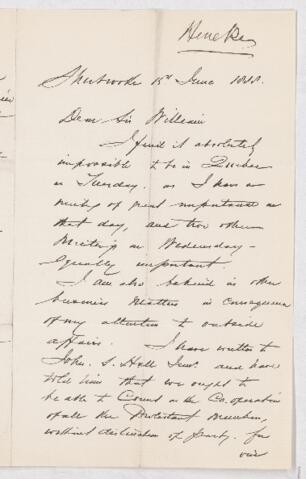 Heneker
Sherbrooke 15th June 1888.
Dear Sir William
I find it absolutely
impossible to be in Quebec
on Tuesday. as I have a
meeting of great importance on
that day, and two other
Meetings on Wednesday –
Equally important.
I am also behind in other
business Matters in consequence
of my attention to outside
affairs. I have written to
John. S. Hall Junr. and have
told him that we ought to
be able to Count on the Co. operation
of all the Protestant Members,
without distinction of party. for